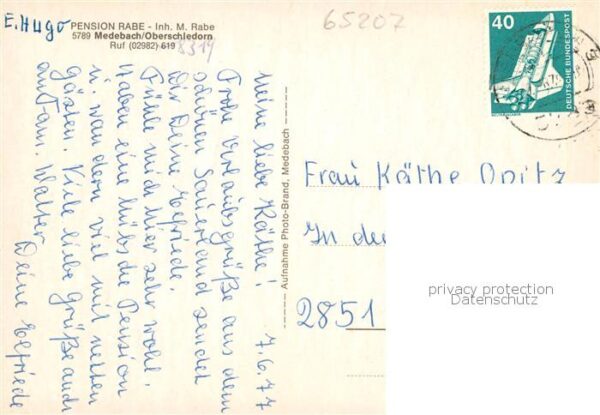 E. Hugo
PENSION RABE - Inh. M. Rabe
5789 Medebach/Oberschledorn
Ruf (02982) 619
8319
65207
40
DEUTSCHE BUNDESPOST
7.6.77
Meine liebe Käthe!
Frohe Urlaubsgrüße aus dem
schönen Sauerland sendet
Dir Deine Elfriede.
Fühle mich hier sehr wohl.
Haben eine hübsche Pension
u. wandern viel mit netten
Gästen. Viele liebe Grüße auch
an Fam. Walter Deine Elfriede
Aufnahme Photo-Brand, Medebach
Frau Käthe Opitz
In de
2851
privacy protection
Datenschutz